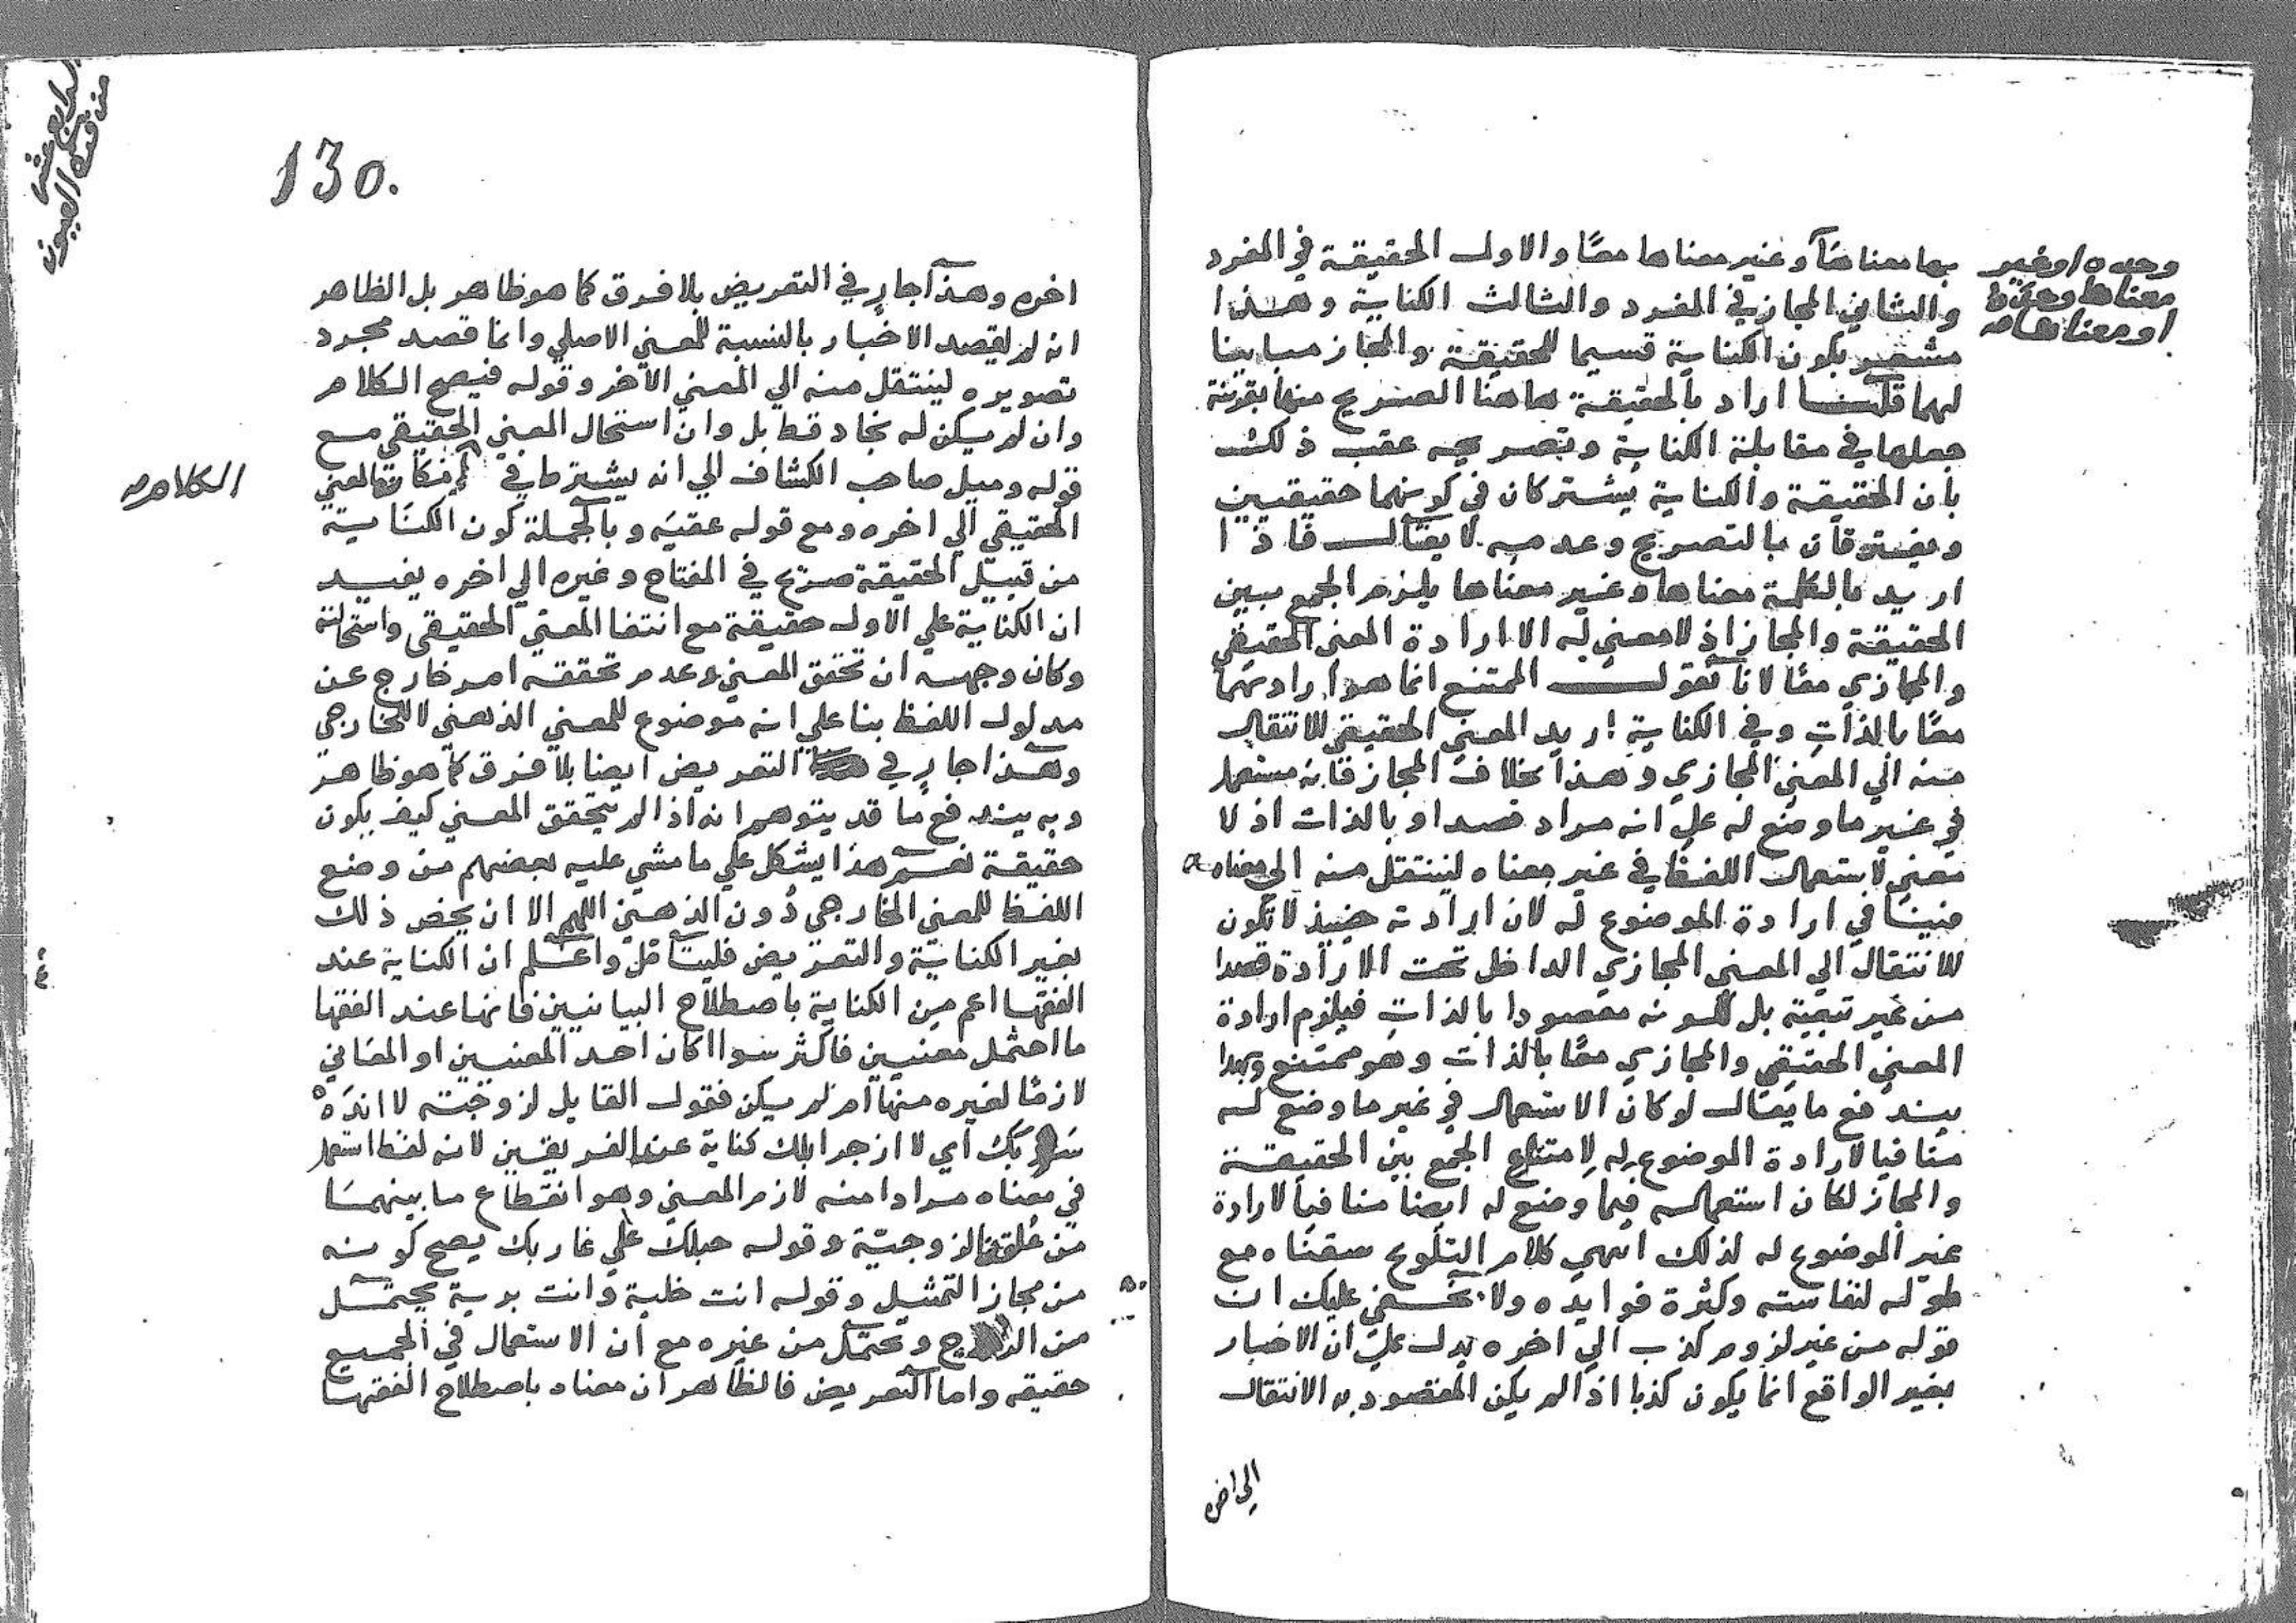 بها معناها وغير معناها معًا والاول الحقيقة في المفرد
وحده او غير
معناها وحده
او معناها صح
والثاني المجاز في المفرد والثالث الكناية وهذا
مشعر بكون الكناية قسيما للحقيقة والمجاز مباينا
لهما قلنا اراد بالحقيقة هاهنا الصريح منها بقرينة
جعلها في مقابلة الكناية وتصريحه عقب ذلك
بأن الحقيقة والكناية يشتركان في كونهما حقيقتين
ويفترقان بالتصريح وعدمه لا يقال فاذا
اريد بالكلمة معناها وغير معناها يلزم الجمع بين
الحقيقة والمجاز اذ لا معني له الا ارادة المعني الحقيقي
والمجازي معًا لانا نقول الممتنع انما هو ارادتهما
معًا بالذات وفي الكناية اريد المعني الحقيقي للانتقال
منه الي المعني المجازي وهذا بخلاف المجاز فانه مستعمل
في غير ما وضع له علي انه مراد قصدا وبالذات اذ لا
معني لاستعمال اللفظ في غير معناه لينتقل منه الي معناه
فينافي ارادة الموضوع له لان ارادته حينيذ لا تكون
للانتقال الي المعني المجازي الداخل تحت الارادة قصدا
من غير تبعية بل لكونه مقصودا بالذات فيلزم ارادة
المعني الحقيقي والمجازي معًا بالذات وهو ممتنع وبهذا
يندفع ما يقال لو كان الاستعمال في غير ما وضع له
منافيا لارادة الموضوع له لامتناع الجمع بين الحقيقة
والمجاز لكان استعماله فيما وضع له ايضا منافيا لارادة
غير الموضوع له لذلك انتهي كلام التلويح سقناه مع
طوله لنفاسته وكثرة فوايده ولا يخفي عليك ان
قوله من غير لزوم كذب الي اخره يدل علي ان الاخبار
بغير الواقع انما يكون كذبا اذا لم يكن المقصود به الانتقال
الي اخره
130.
اخره وهذا جارٍ في التعريض بلا فرق كما هو ظاهر بل الظاهر
انه لم يقصد الاخبار بالنسبة للمعني الاصلي وانما قصد مجرد
تصويره لينتقل منه الي المعني الآخر وقوله فيصح الكلام
وان لم يكن له نجاد قط بل وان استحال المعني الحقيقي مع
قوله وميل صاحب الكشاف الي انه يشترط في امكان المعني
الكلام صح
الحقيقي الي اخره ومع قوله عقبه وبالجملة كون الكناية
من قبيل الحقيقة صرح في المفتاح وغيره الي اخره يفيد
ان الكناية علي الاول حقيقة مع انتفا المعني الحقيقي واستحالته
وكان وجهه ان تحقق المعني وعدم تحققه امر خارج عن
مدلول اللفظ بنا علي انه موضوع للمعني الذهني لا للخارجي
وهذا جارٍ في التعريض ايضا بلا فرق كما هو ظاهر
وبه يندفع ما قد يتوهم انه اذا لم يتحقق المعني كيف يكون
حقيقة نعم هذا يشكل علي ما مشي عليه بعضهم من وضع
اللفظ للمعني الخارجي دون الذهني اللهم الا ان يخص ذلك
بغير الكناية والتعريض فليتأمل واعلم ان الكناية عند
الفقها اعم من الكناية باصطلاح البيانيين فانها عند الفقها
ما احتمل معنيين فاكثر سوا اكان احد المعنيين او المعاني
لازمًا لغيره منها ام لم يكن فقول القايل لزوجته لا انده
سربك اي لا ازجر ابلك كناية عند الفريقين لانه لفظ استعمل
في معناه مرادا منه لازم المعني وهو انقطاع ما بينهما
من علقة الزوجية وقوله حبلك علي غاربك يصح كونه
من مجاز التمثيل وقوله انت خلية وانت برية يحتمل
من الزوج وتحتمل من غيره مع ان الاستعمال في الجميع
حقيقه واما التعريض فالظاهر ان معناه باصطلاح الفقها